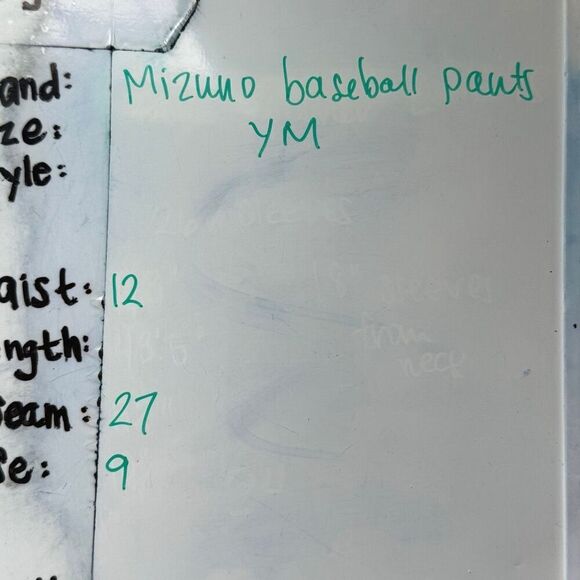 and: Mizuno baseball pants
ze: YM
yle:
aist: 12
ngth:
seam: 27
se: 9